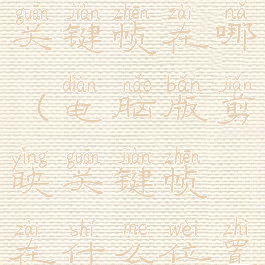 guān jiàn zhēn zài nǎ
关键帧在哪
diàn nǎo bǎn jiǎn
（电脑版剪
yìng guān jiàn zhēn
映关键帧
zài shí me wèi zhì
在什么位置